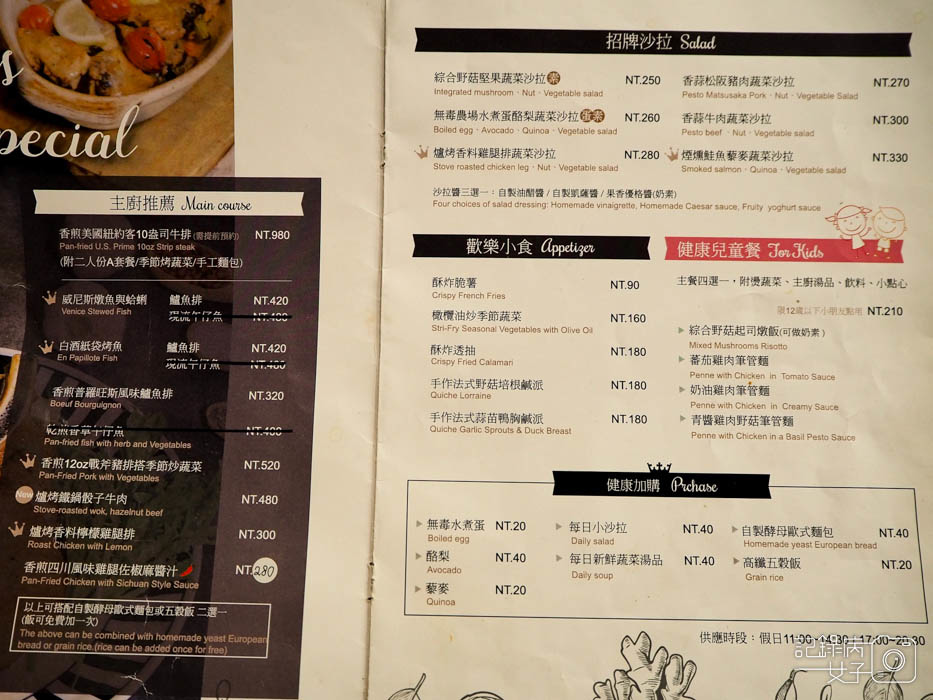 s
pecial
主廚推薦 Main course
香煎美國紐約客10盎司牛排(需提前預約) NT.980
Pan-fried U.S. Prime 10oz Strip steak
(附二人份A套餐/季節烤蔬菜/手工麵包)
威尼斯燉魚與蛤蜊 鱸魚排 NT.420
Venice Stewed Fish 現流午仔魚 NT.480
白酒紙袋烤魚 鱸魚排 NT.420
En Papillote Fish 現流午仔魚 NT.480
香煎普羅旺斯風味鱸魚排 NT.320
Boeuf Bourguignon
乾煎香草午仔魚 NT.480
Pan-fried fish with herb and Vegetables
香煎12oz戰斧豬排搭季節炒蔬菜 NT.520
Pan-Fried Pork with Vegetables
New 爐烤鐵鍋骰子牛肉 NT.480
Stove-roasted wok, hazelnut beef
爐烤香料檸檬雞腿排 NT.300
Roast Chicken with Lemon
香煎四川風味雞腿佐椒麻醬汁 NT.280
Pan-Fried Chicken with Sichuan Style Sauce
以上可搭配自製酵母歐式麵包或五穀飯 二選一
(飯可免費加一次)
The above can be combined with homemade yeast European
bread or grain rice.(rice can be added once for free)
招牌沙拉 Salad
綜合野菇堅果蔬菜沙拉 素 NT.250
Integrated mushroom、Nut、Vegetable salad
無毒農場水煮蛋酪梨蔬菜沙拉 蛋素 NT.260
Boiled egg、Avocado、Quinoa、Vegetable salad
爐烤香料雞腿排蔬菜沙拉 NT.280
Stove roasted chicken leg、Nut、Vegetable salad
香蒜松阪豬肉蔬菜沙拉 NT.270
Pesto Matsusaka Pork、Nut、Vegetable Salad
香蒜牛肉蔬菜沙拉 NT.300
Pesto beef 、Nut、Vegetable salad
煙燻鮭魚藜麥蔬菜沙拉 NT.330
Smoked salmon、Quinoa、Vegetable salad
沙拉醬三選一：自製油醋醬 / 自製凱薩醬 / 果香優格醬(奶素)
Four choices of salad dressing: Homemade vinaigrette, Homemade Caesar sauce, Fruity yoghurt sauce
歡樂小食 Appetizer
酥炸脆薯 NT.90
Crispy French Fries
橄欖油炒季節蔬菜 NT.160
Stri-Fry Seasonal Vegetables with Olive Oil
酥炸透抽 NT.180
Crispy Fried Calamari
手作法式野菇培根鹹派 NT.180
Quiche Lorraine
手作法式蒜苗鴨胸鹹派 NT.180
Quiche Garlic Sprouts & Duck Breast
健康兒童餐 For Kids
主餐四選一，附燙蔬菜、主廚湯品、飲料、小點心
限12歲以下小朋友點用 NT.210
綜合野菇起司燉飯(可做奶素)
Mixed Mushrooms Risotto
蕃茄雞肉筆管麵
Penne with Chicken in Tomato Sauce
奶油雞肉筆管麵
Penne with Chicken in Creamy Sauce
青醬雞肉野菇筆管麵
Penne with Chicken in a Basil Pesto Sauce
健康加購 Prchase
無毒水煮蛋 NT.20
Boiled egg
酪梨 NT.40
Avocado
藜麥 NT.20
Quinoa
每日小沙拉 NT.40
Daily salad
每日新鮮蔬菜湯品 NT.40
Daily soup
自製酵母歐式麵包 NT.40
Homemade yeast European bread
高纖五穀飯 NT.20
Grain rice
供應時段：假日11:00~14:30 / 17:00~20:30
記錄病
女子